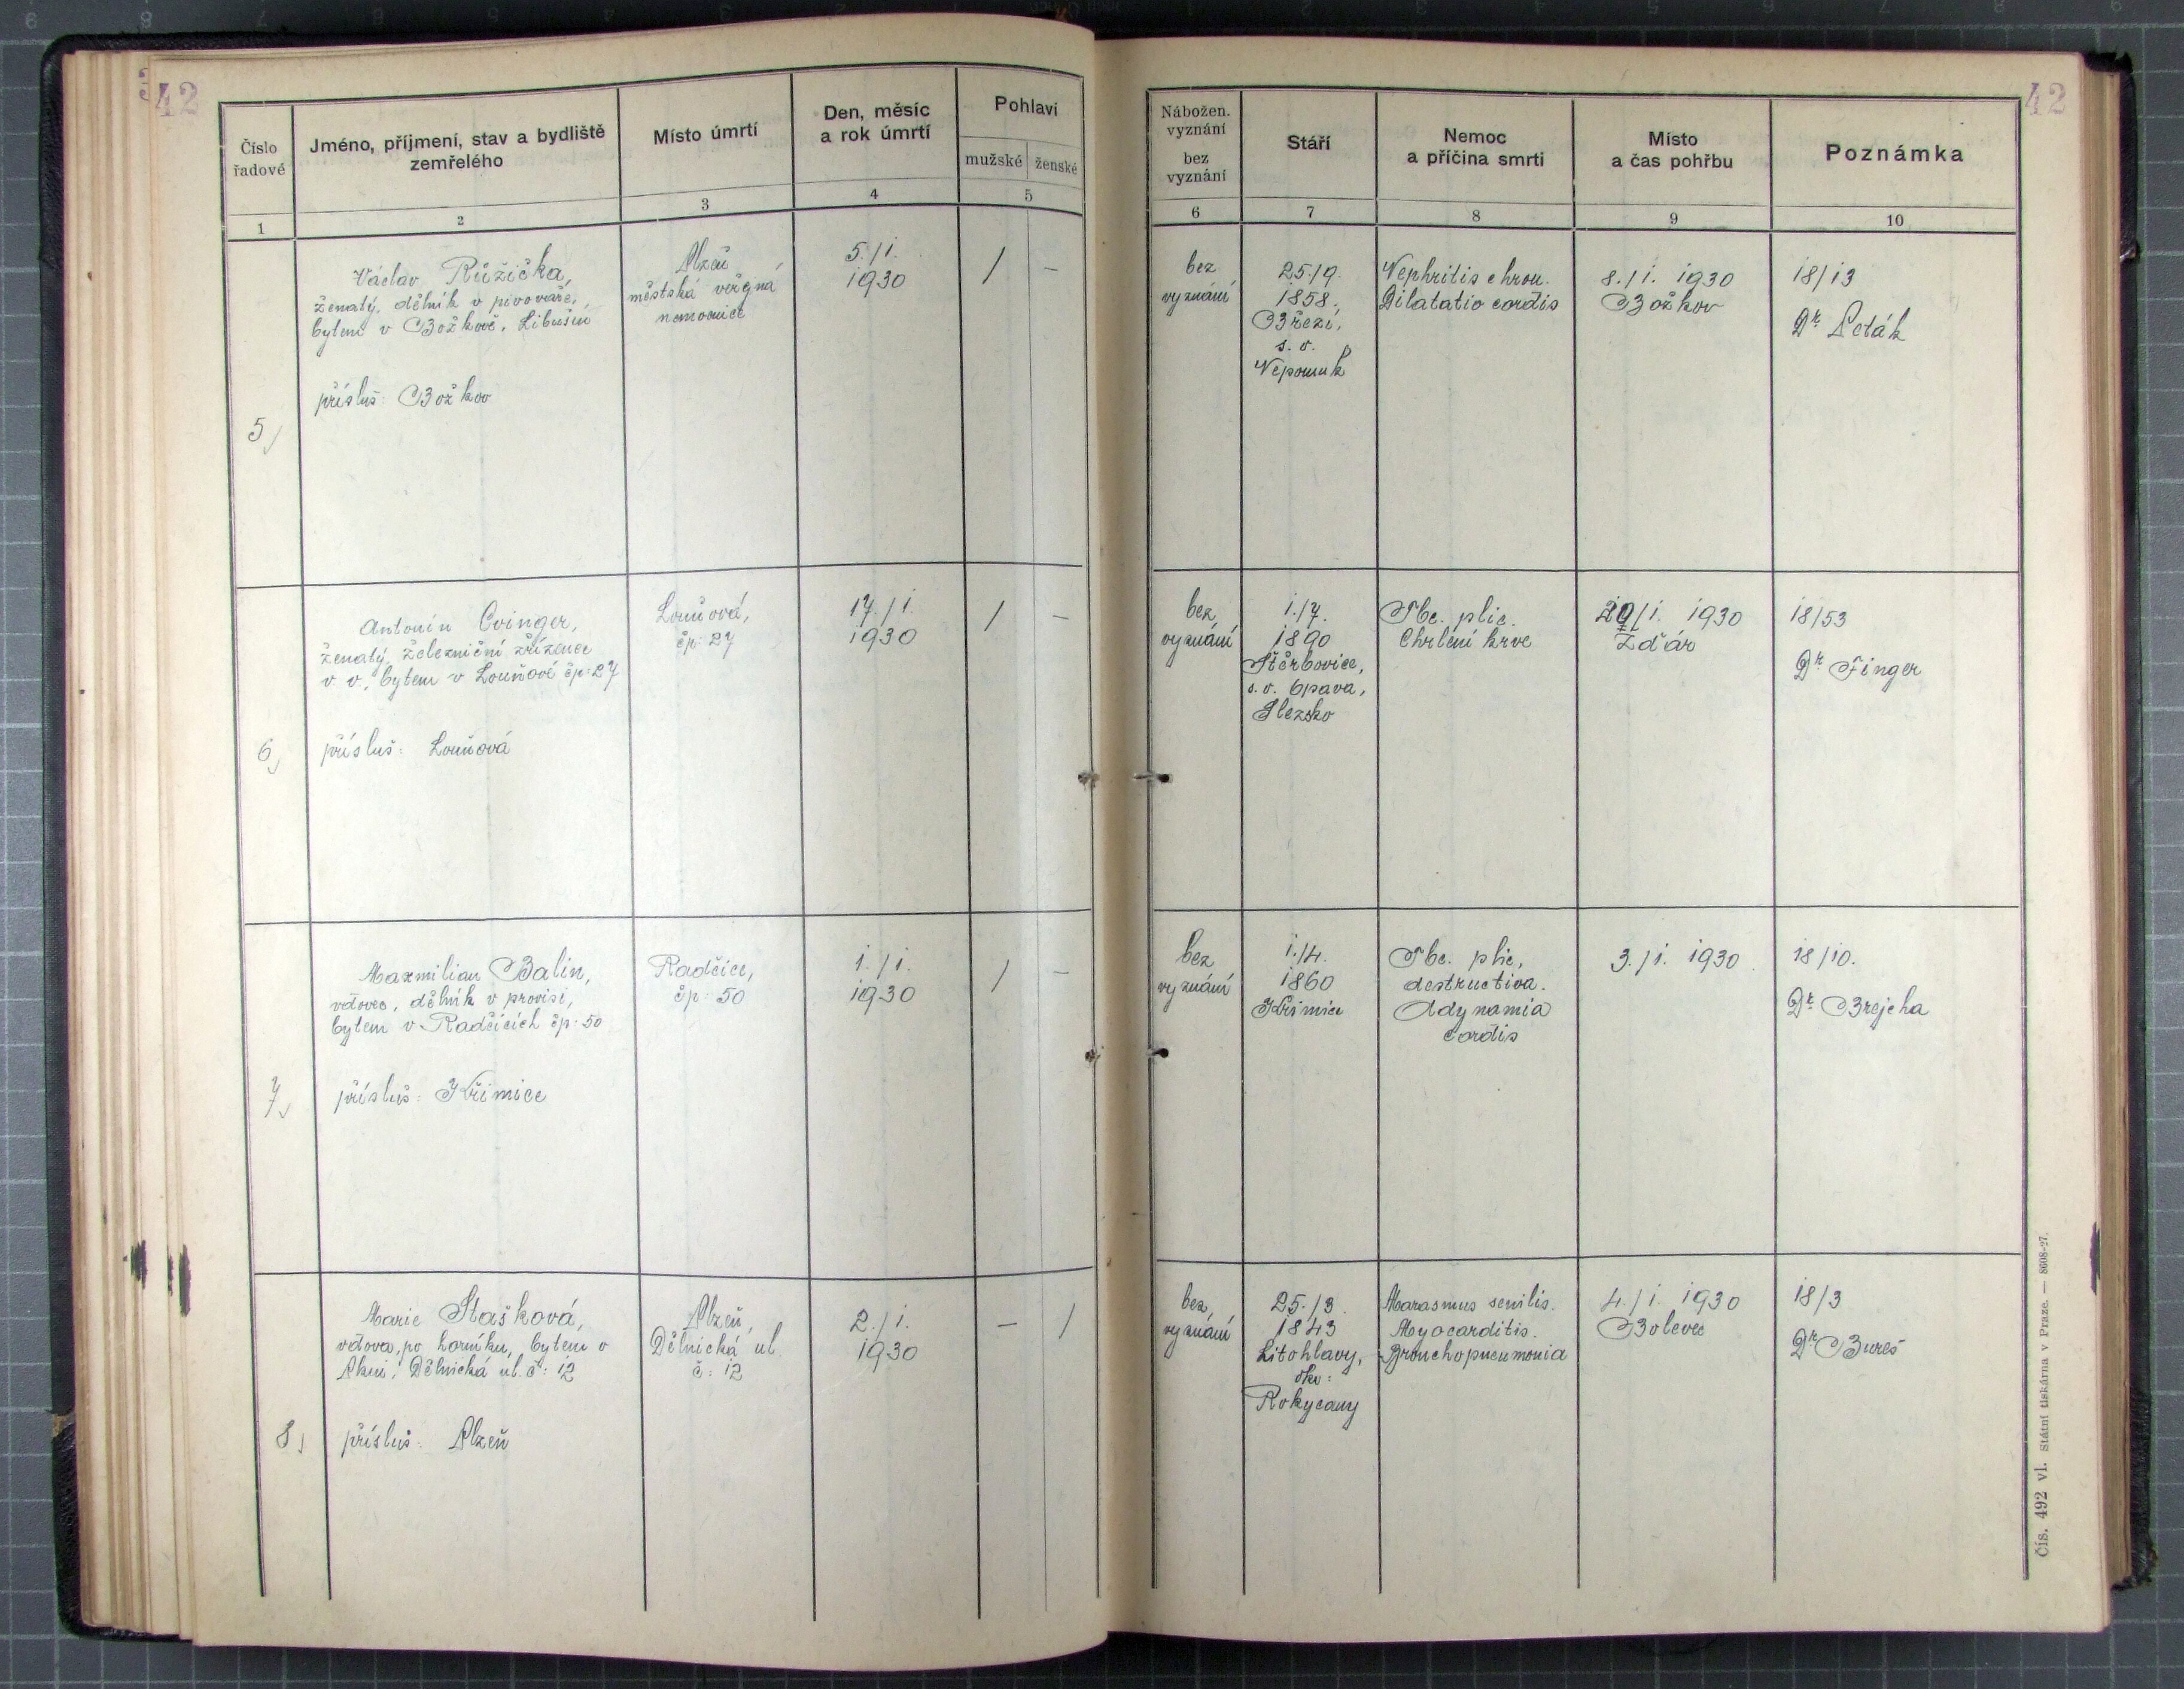 42
42
Číslo
řadové
Jméno, příjmení, stav a bydliště
zemřelého
Místo úmrtí
Den, měsíc
a rok úmrtí
Pohlaví
mužské
ženské
Nábožen.
vyznání
bez
vyznání
Stáří
Nemoc
a příčina smrti
Místo
a čas pohřbu
Poznámka
1
2
3
4
5
6
7
8
9
10
5
Václav Růžička,
ženatý, dělník v pivovaře,
bytem v Božkově, Libušín
přísluš: Božkov
Plzeň
městská veřejná
nemocnice
5./1.
1930
/
–
bez
vyznání
25./9.
1858.
Březí,
s. o.
Nepomuk
Nephritis chron.
Dilatatio cordis
8./1. 1930
Božkov
18/13
Dr Peták
6
Antonín Cvinger,
ženatý, železniční zřízenec
v. v., bytem v Louňové čp: 27
přísluš: Louňová
Louňová,
čp: 27
17./1.
1930
/
–
bez
vyznání
1./7.
1890
Štěrbovice,
s. o. Opava,
Slezsko
Tbc. plic.
Chrlení krve
20/1. 1930
Žďár
18/53
Dr Finger
7
Maxmilian Balin,
vdovec, dělník v provisi,
bytem v Radčicích čp: 50
přísluš: Křimice
Radčice,
čp: 50
1./1.
1930
/
–
bez
vyznání
1./4.
1860
Křimice
Tbc. plic,
destructiva.
Adynamia
cordis
3./1. 1930
18/10.
Dr Brejcha
8
Marie Stašková,
vdova po horníku, bytem v
Plzni, Dělnická ul. č: 12
přísluš: Plzeň
Plzeň,
Dělnická ul.
č: 12
2./1.
1930
–
/
bez
vyznání
25./3.
1843
Litohlavy,
okr:
Rokycany
Marasmus senilis.
Myocarditis.
Bronchopneumonia
4./1. 1930
Bolevec
18/3
Dr Bureš
Čís. 492 vl. Státní tiskárna v Praze. — 8608-27.